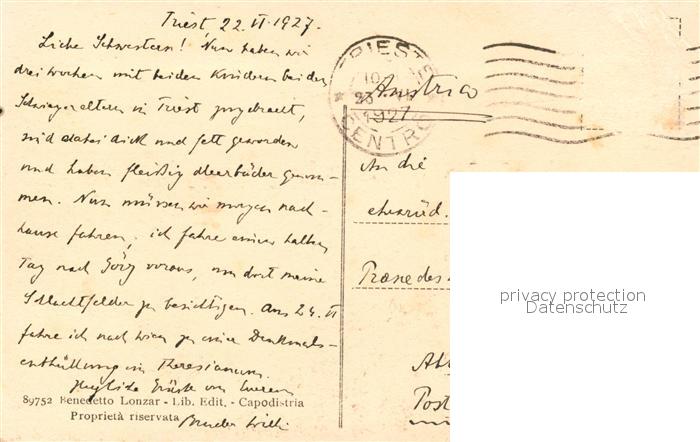 Triest 22.VI.1927.
Liebe Schwestern! Nun haben wir
drei Wochen mit beiden Kindern bei den
Schwiegereltern in Triest zugebracht,
sind dabei dick und fett geworden
und haben fleißig Meerbäder genom-
men. Nun müssen wir morgen nach-
hause fahren, ich fahre einen halben
Tag nach Görz voraus, um dort meine
Schlachtfelder zu besichtigen. Am 24. VI
fahre ich nach Wien zu einer Denkmals-
enthüllung im Theresianum.
Herzliche Grüße von Eurem
Bruder Willi
89752 Benedetto Lonzar - Lib. Edit. - Capodistria
Proprietà riservata
TRIESTE
CENTRO
1927
Austria
An die
ehrwürd.
Praes des
Post
privacy protection
Datenschutz